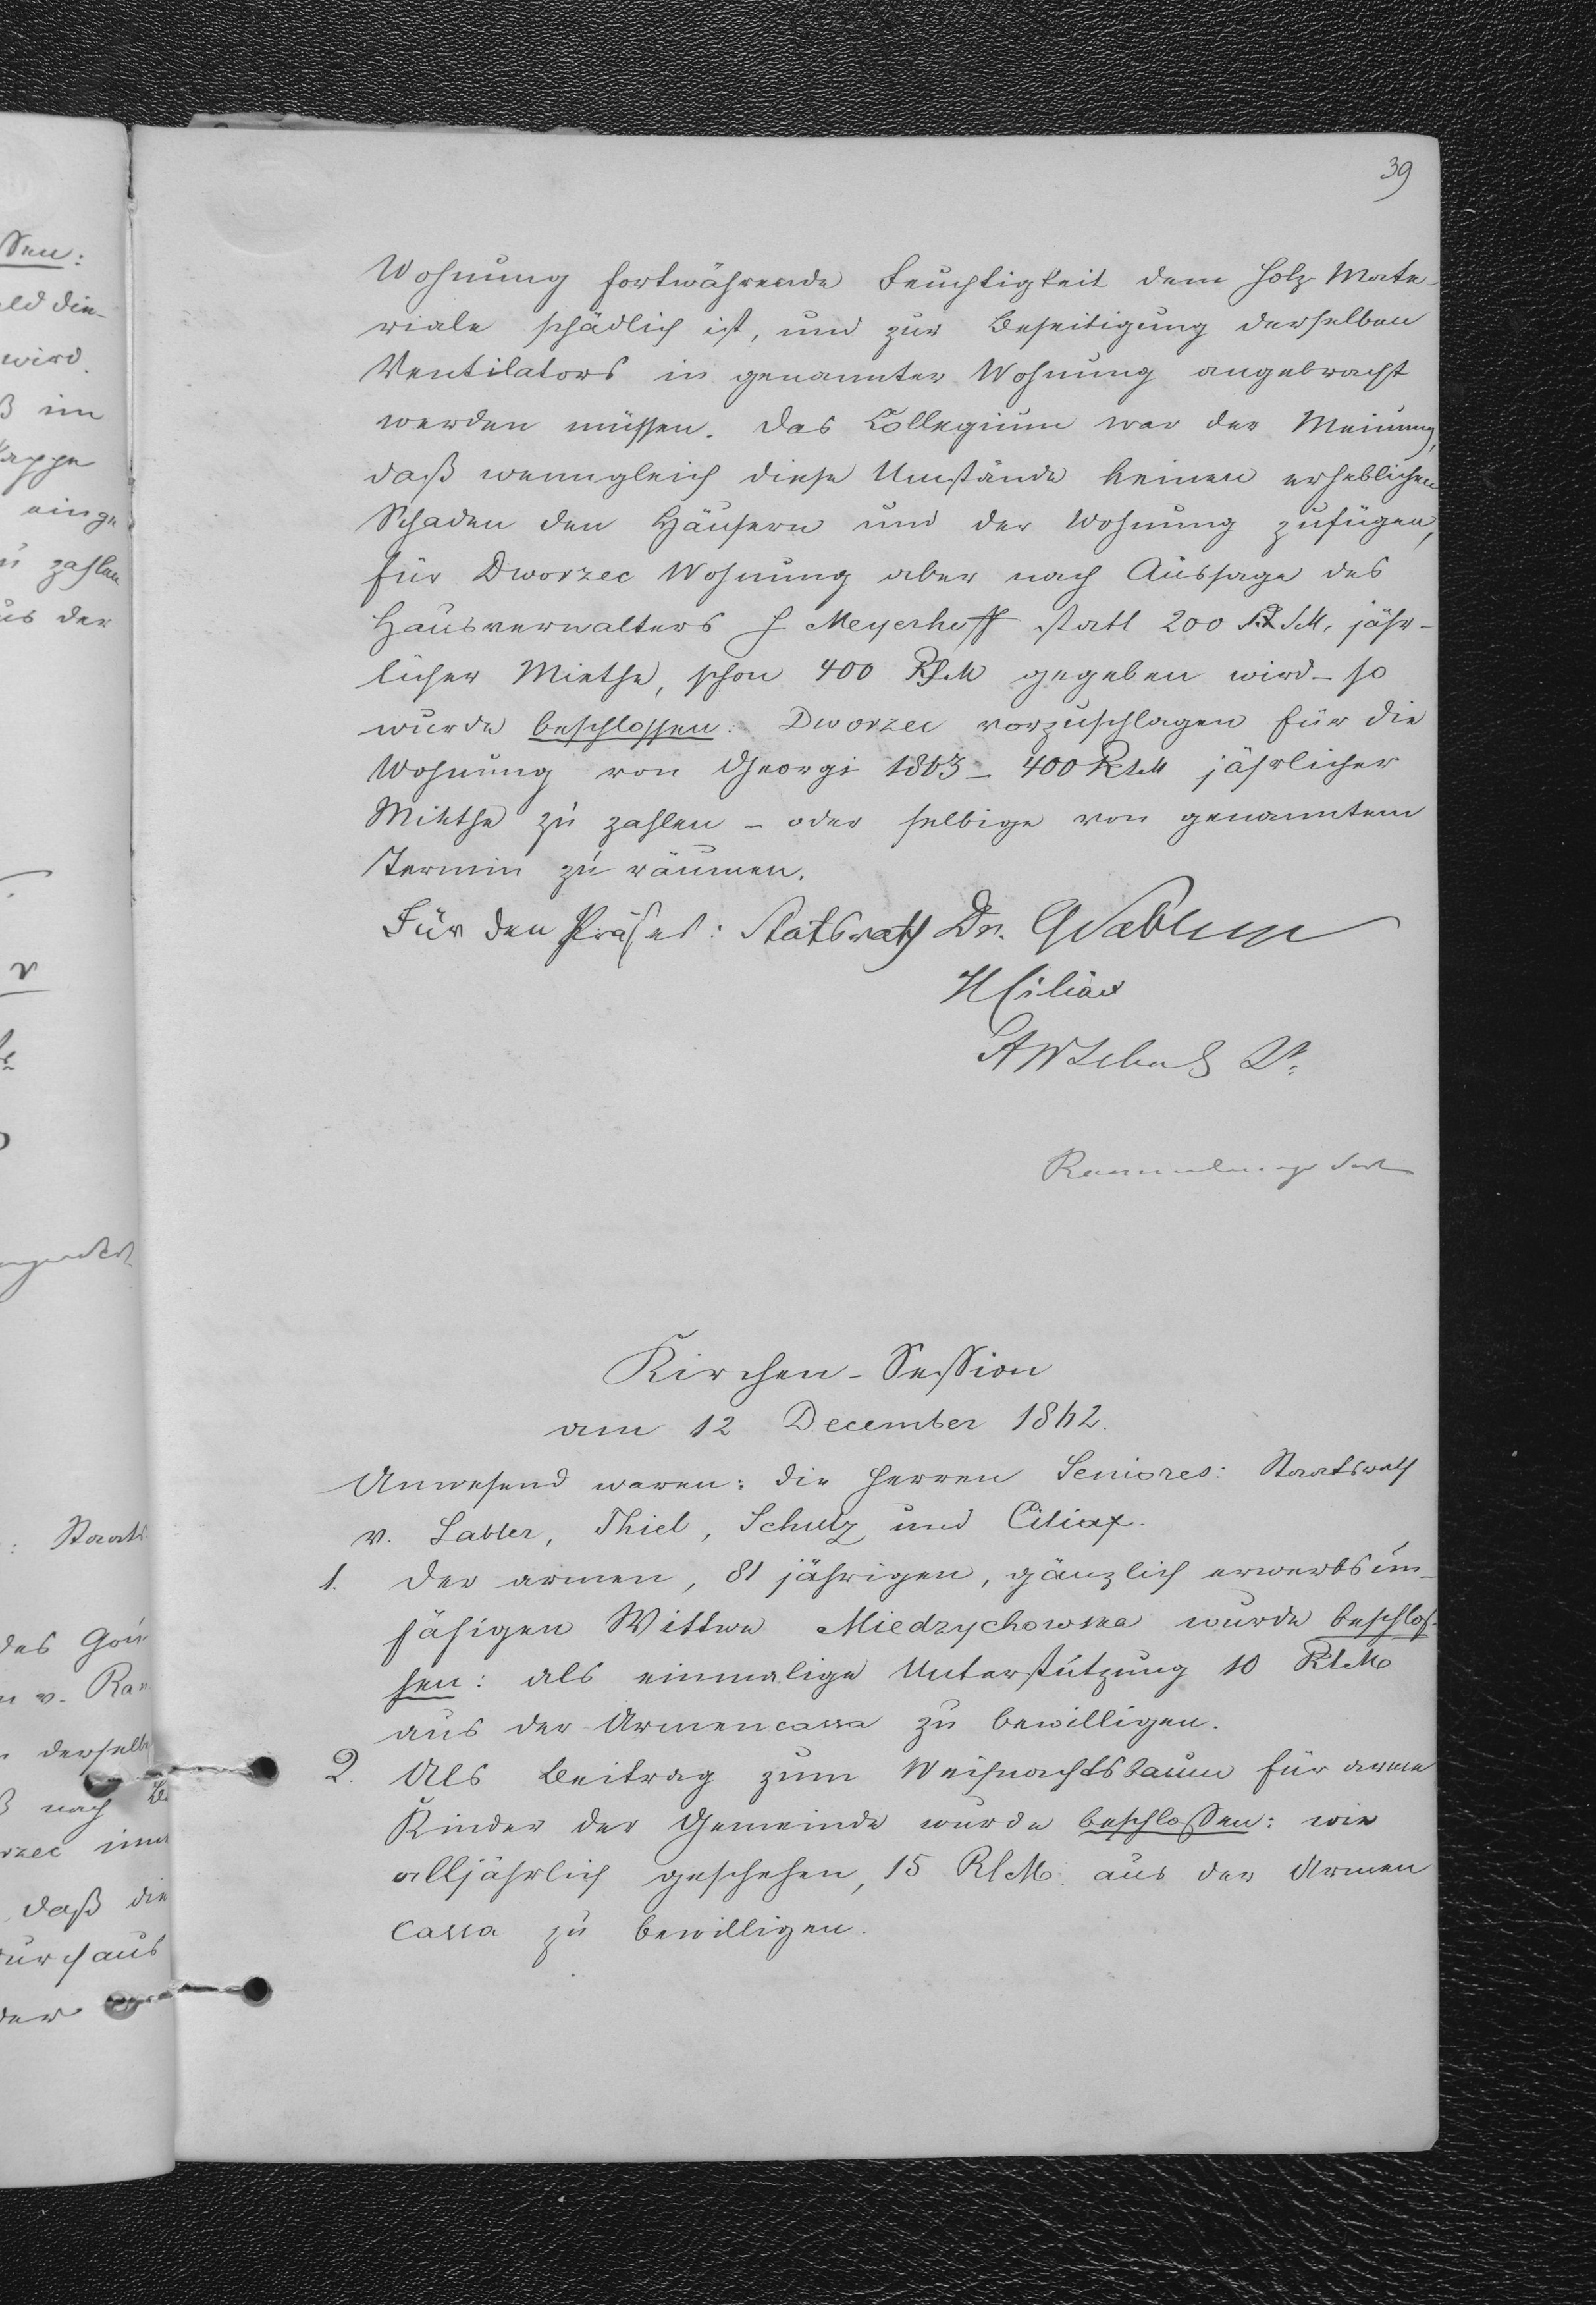 39
Wohnung fortwährende Feuchtigkeit dem Holz Mate-
riale schädlich ist, und zur Beseitigung derselben
Ventilators in genannter Wohnung angebracht
werden müssen. Das Collegium war der Meinung,
daß wenngleich diese Umstände keinen erheblichen
Schaden den Häusern und der Wohnung zufügen,
für Dworzec Wohnung aber nach Aussage des
Hausverwalters H Meyerhoff statt 200 R.S.M. jähr-
licher Miethe, schon 400 RSM gegeben wird - so
wurde beschlossen: Dworzec vorzuschlagen für die
Wohnung von Georgi 1863 - 400 RSM jährlicher
Miethe zu zahlen - oder selbige von genanntem
Termin zu räumen.
Für den Präses: Statsrath Dr.
H Ciliax
Kirchen-Session
am 12 December 1862.
Anwesend waren: die Herren Seniores: Staatsrath
v. Labler, Thiel, Schulz und Ciliax.
1. Der armen, 81 jährigen, gänzlich erwerbsun-
fähigen Wittwe Miedzychowska wurde beschlos-
sen: als einmalige Unterstützung 10 RSM
aus der Armencassa zu bewilligen.
2. Als Beitrag zum Weihnachtsbaum für arme
Kinder der Gemeinde wurde beschlossen: wie
alljährlich geschehen, 15 RSM. aus der Armen
Cassa zu bewilligen.